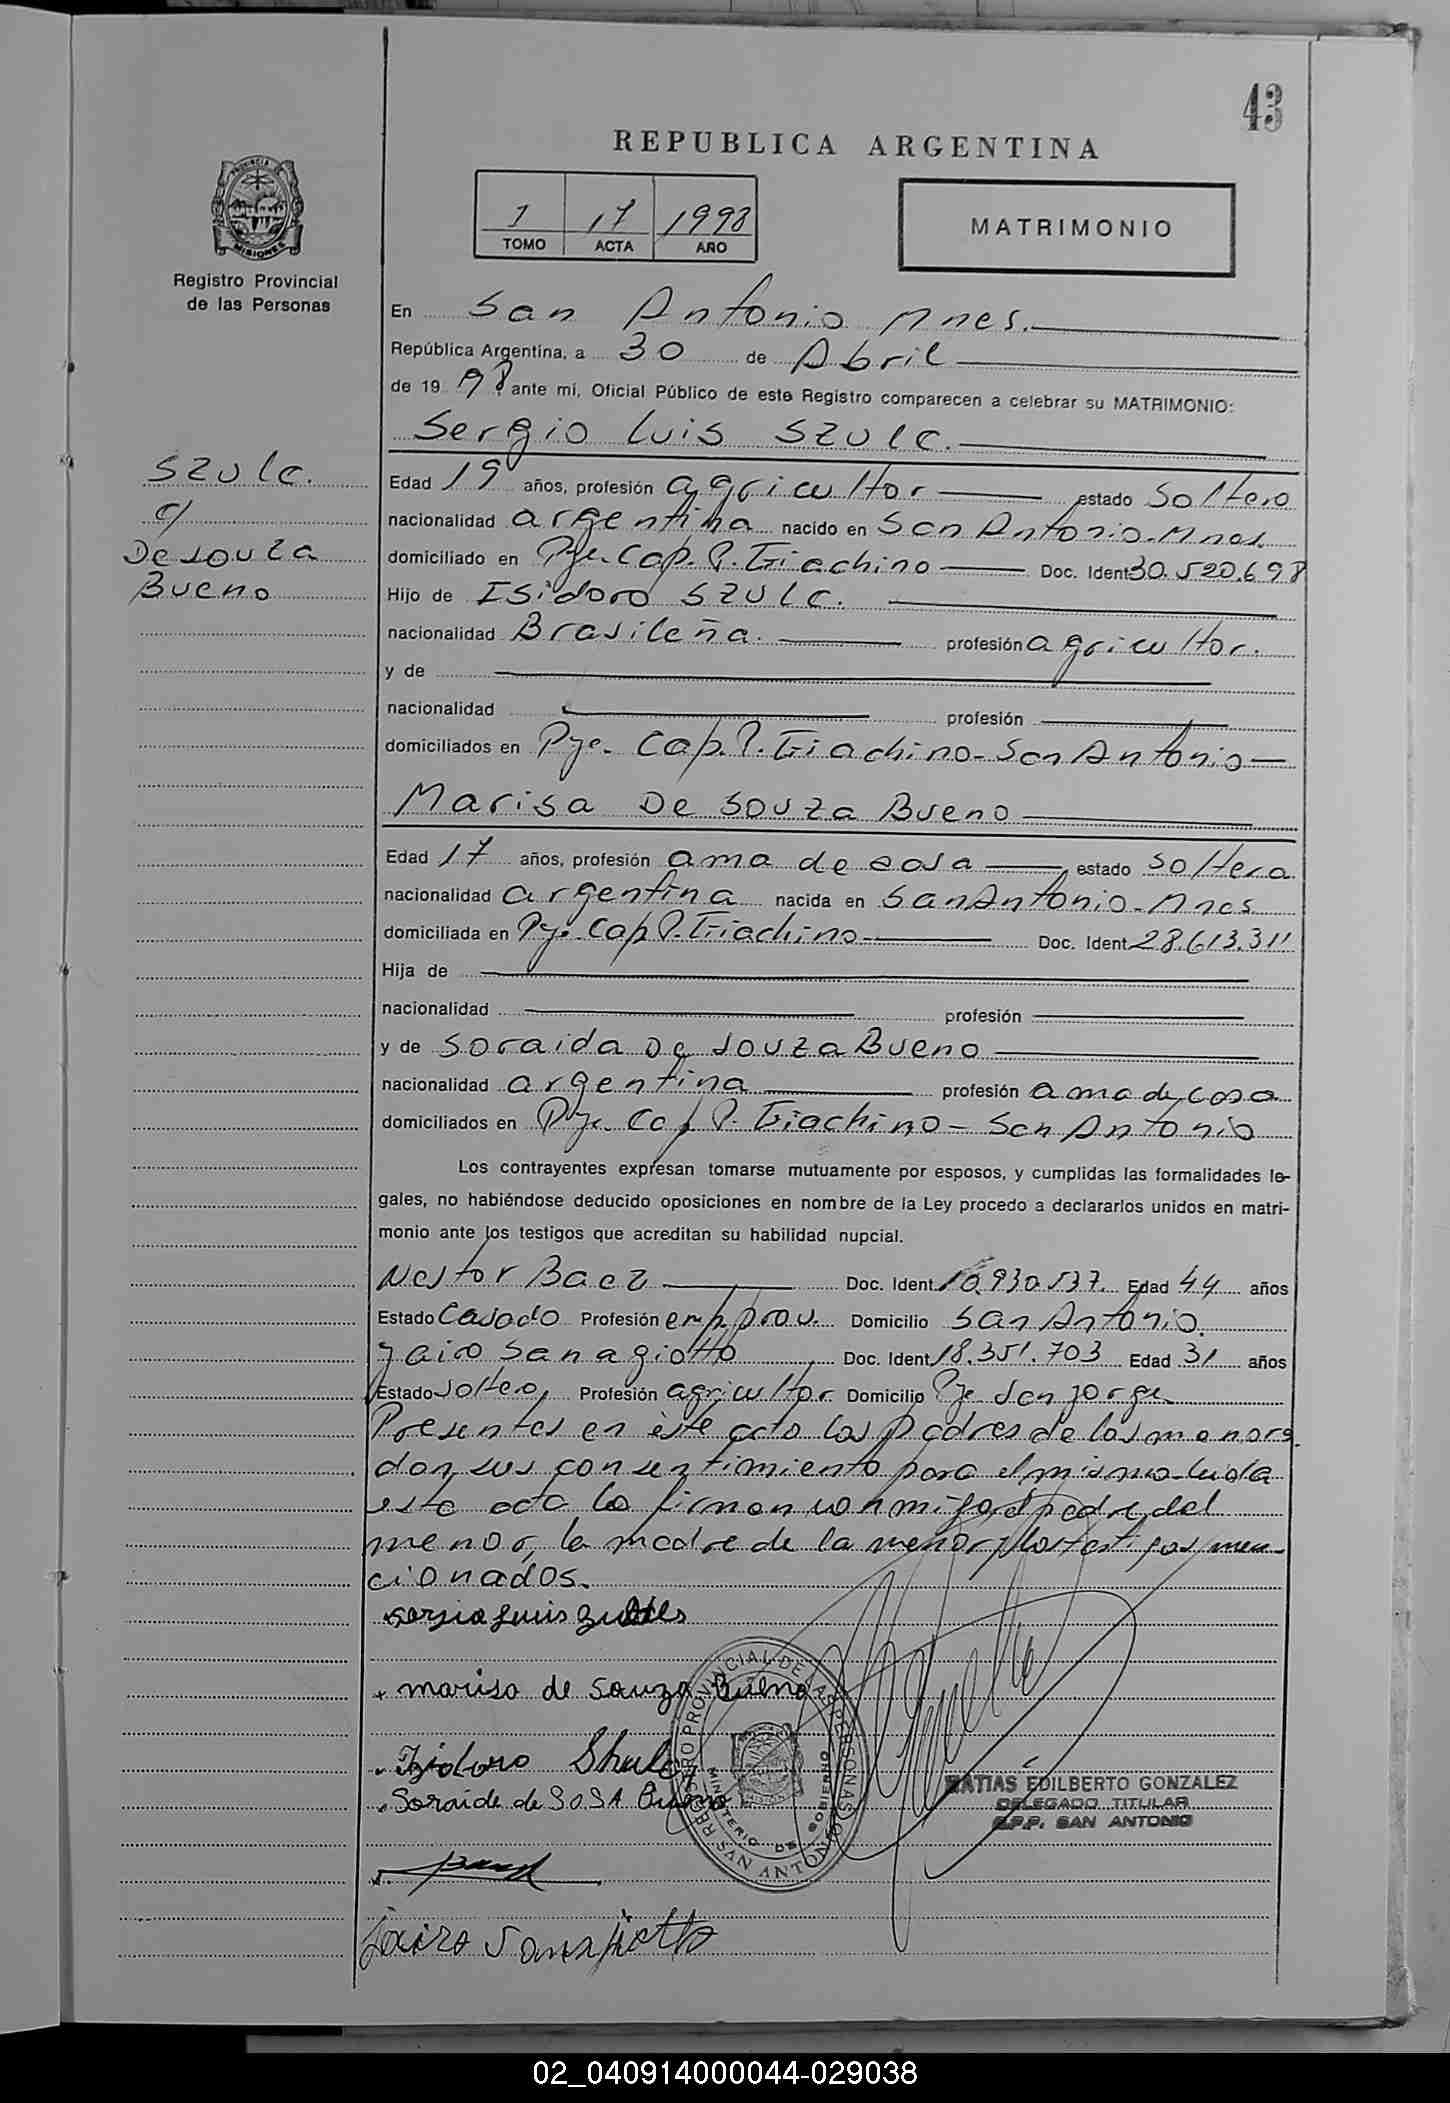 43
REPUBLICA ARGENTINA
PROVINCIA DE MISIONES
Registro Provincial
de las Personas
1 17 1998
TOMO ACTA AÑO
MATRIMONIO
En San Antonio Mnes.
República Argentina, a 30 de Abril
de 19 98 ante mí, Oficial Público de este Registro comparecen a celebrar su MATRIMONIO:
Sergio Luis SZULC.
SZULC.
c/
De SOUZA
BUENO
Edad 19 años, profesión agricultor estado Soltero
nacionalidad argentina nacido en San Antonio-Mnes.
domiciliado en Pje. Cap. P. Giachino Doc. Ident 30.520.698
Hijo de ISidoro SZULC.
nacionalidad Brasileña. profesión agricultor.
y de
nacionalidad profesión
domiciliados en Pje. Cap. P. Giachino-San Antonio
Marisa De SOUZA BUENO
Edad 17 años, profesión ama de casa estado Soltera
nacionalidad argentina nacida en San Antonio-Mnes
domiciliada en Pje. Cap P. Giachino Doc. Ident 28.613.311
Hija de
nacionalidad profesión
y de Soraida De SOUZA BUENO
nacionalidad argentina profesión ama de casa
domiciliados en Pje. Cap P. Giachino - San Antonio
Los contrayentes expresan tomarse mutuamente por esposos, y cumplidas las formalidades le-
gales, no habiéndose deducido oposiciones en nombre de la Ley procedo a declararlos unidos en matri-
monio ante los testigos que acreditan su habilidad nupcial.
Nestor Baez Doc. Ident 10.930.537. Edad 44 años
Estado Casado Profesión emp. prov. Domicilio San Antonio.
Jairo Sanagiotto Doc. Ident 18.351.703 Edad 31 años
Estado Soltero, Profesión agricultor Domicilio Pje San Jorge
Presentes en éste acto los padres de los menores
dan sus consentimiento para el mismo-leida
esta acta la firman con migo, el padre del
menor, la madre de la menor y los testigos men-
cionados.
Sergio Luis
+ marisa de Souza Bueno
Isidoro Shulc
Soraide de SOSA Bueno
REGISTRO PROVINCIAL DE LAS PERSONAS
MINISTERIO DE GOBIERNO
SAN ANTONIO
MATIAS EDILBERTO GONZALEZ
DELEGADO TITULAR
R.P.P. SAN ANTONIO
Jairo Sanagiotto
02_040914000044-029038